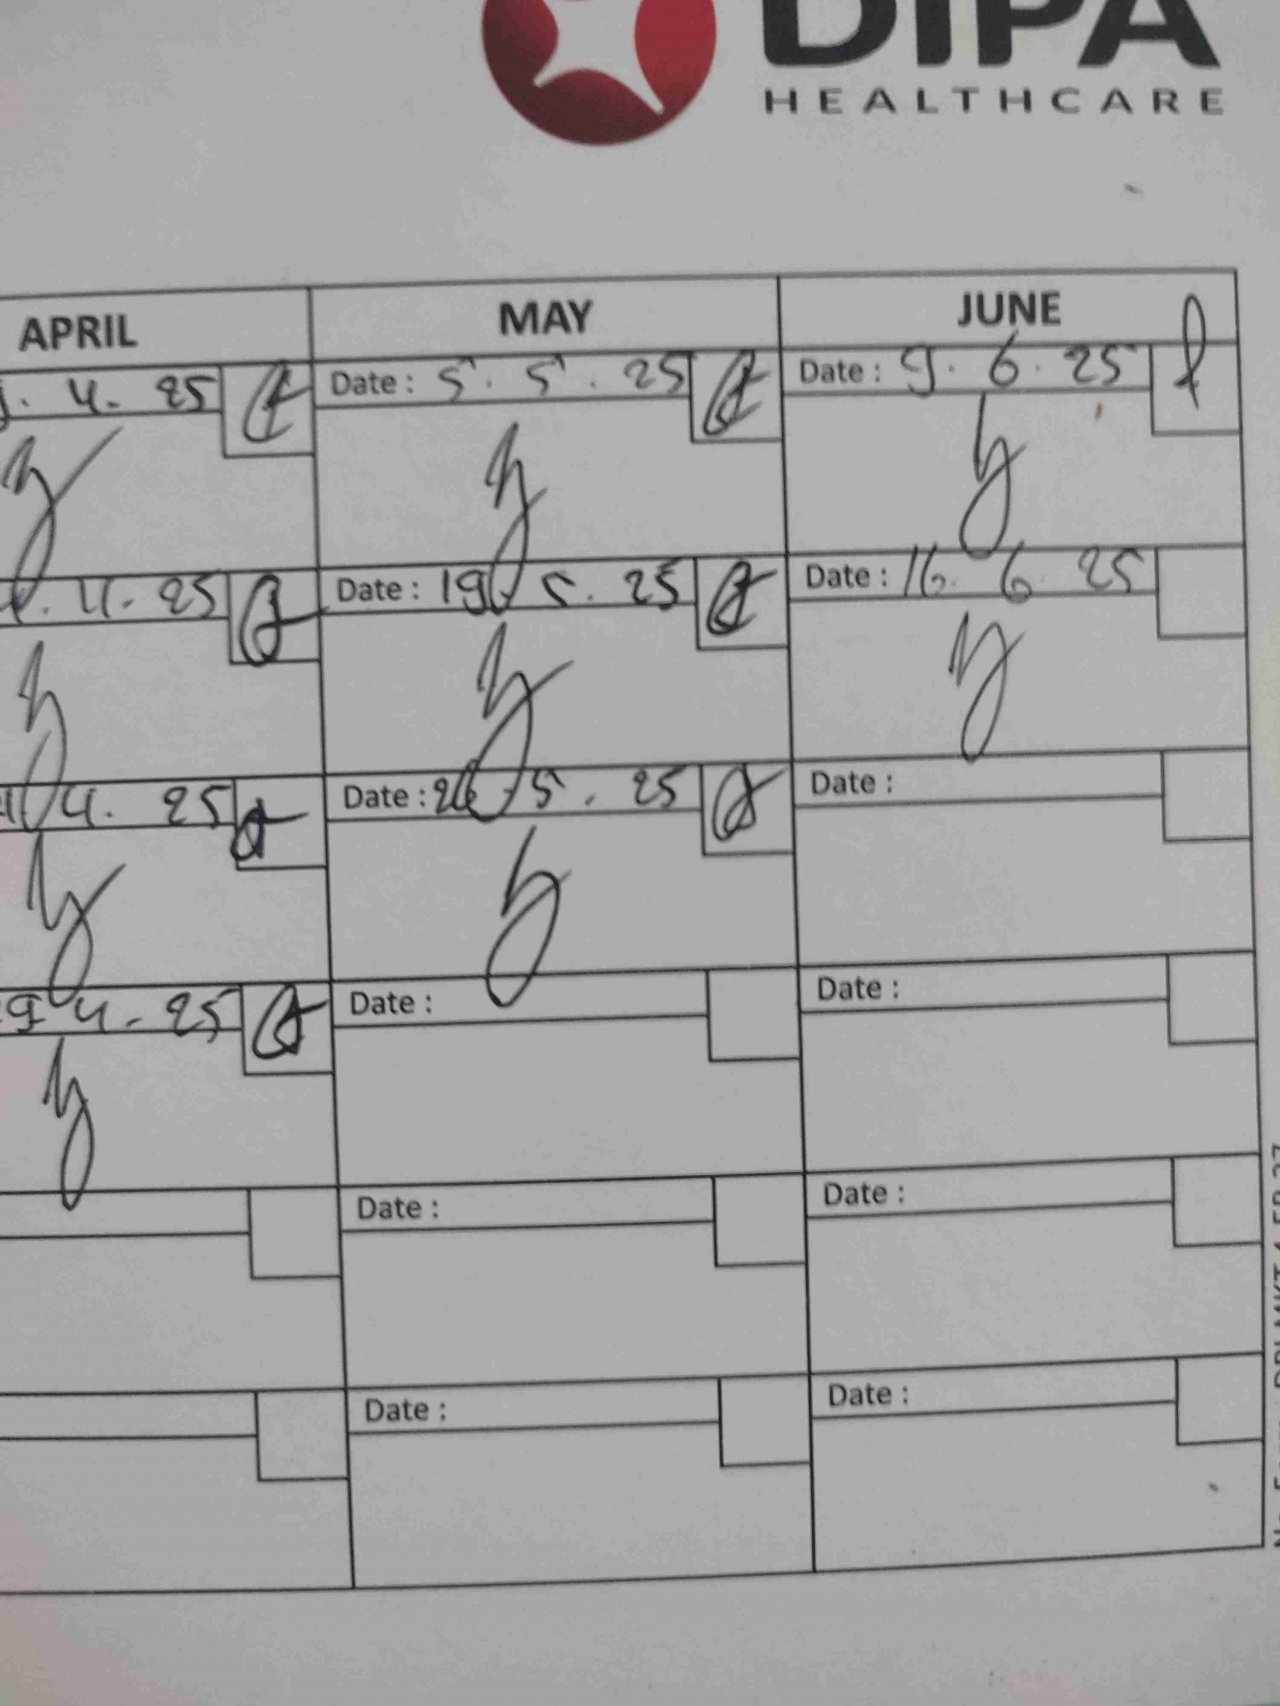 DIPA
HEALTHCARE
APRIL MAY JUNE
4. 25 Date : 5. 5. 25 Date : 9. 6. 25
4. 25 Date : 19 5. 25 Date : 16. 6 25
4. 25 Date : 26 5. 25 Date :
29 4. 25 Date : Date :
Date : Date :
Date : Date :